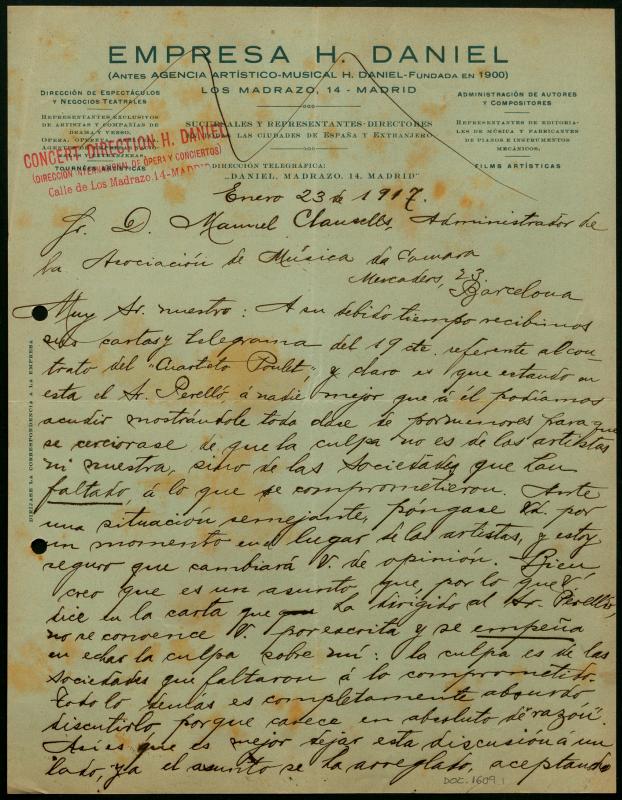 EMPRESA H. DANIEL
(ANTES AGENCIA ARTÍSTICO-MUSICAL H. DANIEL-FUNDADA EN 1900)
LOS MADRAZO, 14 - MADRID
DIRECCIÓN DE ESPECTÁCULOS
Y NEGOCIOS TEATRALES
REPRESENTANTES EXCLUSIVOS
DE ARTISTAS Y COMPAÑÍAS DE
DRAMA Y VERSO,
TOURNÉES ARTÍSTICAS
SUCURSALES Y REPRESENTANTES-DIRECTORES
LAS CIUDADES DE ESPAÑA Y EXTRANJERO
DIRECCIÓN TELEGRÁFICA:
"DANIEL, MADRAZO, 14. MADRID"
ADMINISTRACIÓN DE AUTORES
Y COMPOSITORES
REPRESENTANTES DE EDITORIA-
LES DE MÚSICA Y FABRICANTES
DE PIANOS E INSTRUMENTOS
MECÁNICOS.
FILMS ARTÍSTICAS
CONCERT DIRECTION H. DANIEL
(DIRECCIÓN INTERNACIONAL DE ÓPERA Y CONCIERTOS)
Calle de Los Madrazo, 14-MADRID
DIRÍJASE LA CORRESPONDENCIA A LA EMPRESA
Enero 23 de 1917.
Sr. D. Manuel Clausells, Administrador de
la Asociación de Música da Camara
Mercaders, 23
Barcelona
Muy Sr. nuestro: A su debido tiempo recibimos
sus cartas y telegrama del 19 cte. referente al con-
trato del "Cuarteto Poulet", y claro es que estando en
esta el Sr. Perelló á nadie mejor que á él podíamos
acudir mostrándole toda clase de pormenores para que
se cerciorase de que la culpa no es de los artistas
ni nuestra, sino de las Sociedades que han
faltado, á lo que se comprometieron. Ante
una situación semejante, póngase Vd. por
un momento en el lugar de los artistas, y estoy
seguro que cambiará V. de opinión. Bien
creo que es un asunto que, por lo que V.
dice en la carta que ha dirigido al Sr. Perelló,
no se convence V. por escrito y se empeña
en echar la culpa sobre mí: la culpa es de las
Sociedades que faltaron á lo comprometido.
Todo lo demás es completamente absurdo
discutirlo, porque carece en absoluto de "razón".
Así es que es mejor dejar esta discusión á un
lado, ya el asunto se ha arreglado, aceptando
DOC. 1609